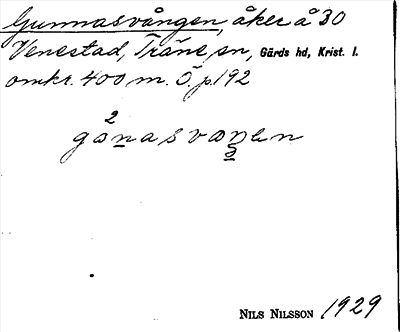 Gunnasvången, åker å 30
Venestad, Träne sn, Gärds hd, Krist. l.
omkr. 400 m. Ö. p. 192
2
gonasvaŋen
NILS NILSSON 1929